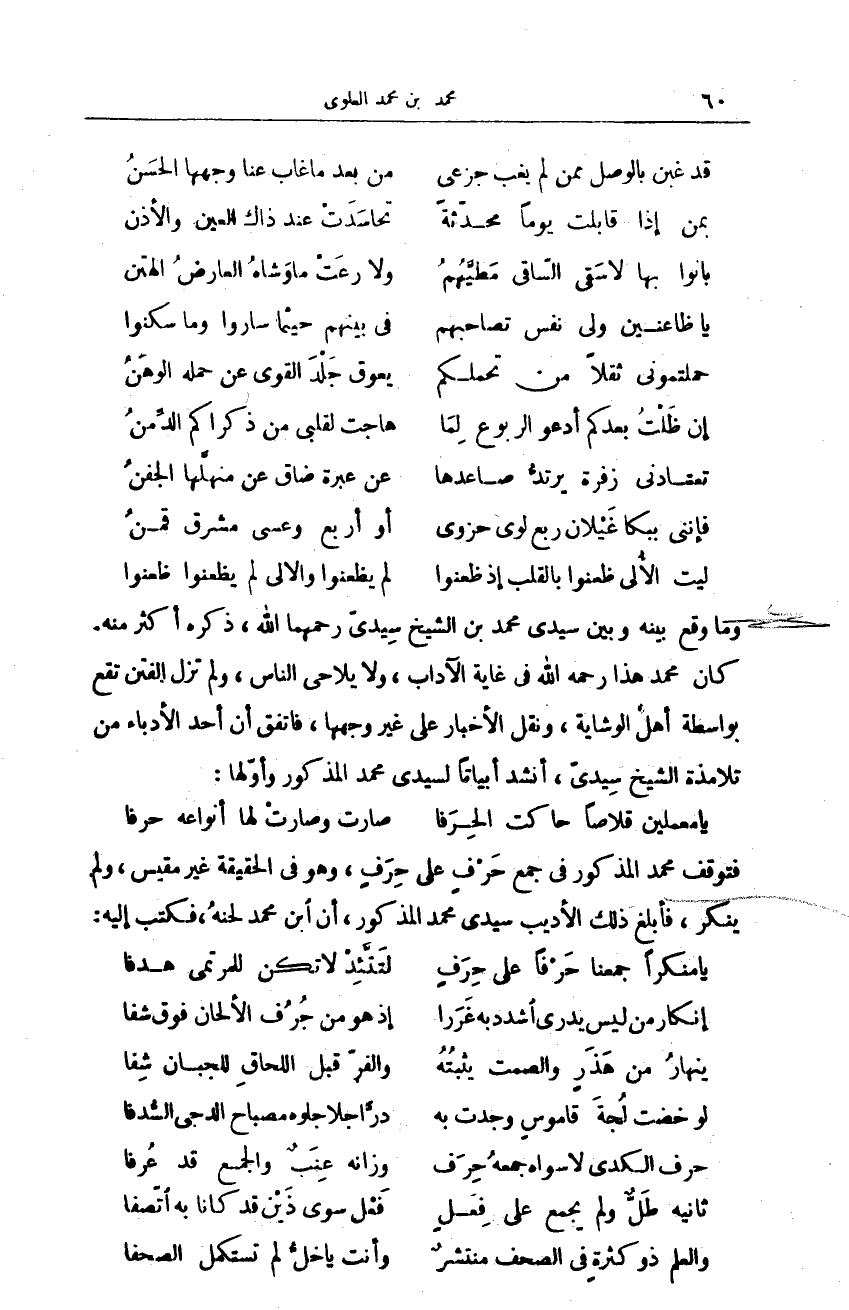 ٦٠ محمد بن محمد العلوى
قد غبن بالوصل ممن لم يغب جزعى من بعد ماغاب عنا وجهها الحَسَنُ
بمن إذا قابلت يوماً محدّثةً تحاسَدَتْ عند ذاك العين والأذن
بانوا بها لاسَقَى السّاقى مَطيَّهُمُ ولا رعَتْ ماوَشاهُ العارضُ الهتن
ياظاعنين ولى نفس تصاحبهم فى بينهم حيثما ساروا وما سكنوا
حملتمونى ثقلاً من تحملكم يعوق جَلْدَ القوى عن حمله الوهَنُ
إن ظَلْتُ بعدكم أدعو الربوع لِمَا هاجت لقلبى من ذكراكم الدِّمنُ
تعتادنى زفرة يرتدّ صاعدها عن عبرة ضاق عن منهلِّها الجفنُ
فإننى ببكا غَيْلان ربع لوى حزوى أو أربع وعسى مشرق قمنُ
ليت الأُلى ظعنوا بالقلب إذ ظعنوا لم يظعنوا والالى لم يظعنوا ظعنوا
وما وقع بينه وبين سيدى محمد بن الشيخ سِيدىّ رحمهما الله، ذكره أكثر منه.
كان محمد هذا رحمه الله فى غاية الآداب، ولا يلاحى الناس، ولم تزل الفتن تقع
بواسطة أهل الوشاية، ونقل الأخبار على غير وجهها، فاتفق أن أحد الأدباء من
تلامذة الشيخ سِيدىّ، أنشد أبياتاً لسيدى محمد المذكور وأوّلها:
يامعملين قلاصاً حاكت الحِرَفا صارت وصارتْ لها أنواعه حرفا
فتوقف محمد المذكور فى جمع حَرْفٍ على حِرَفٍ، وهو فى الحقيقة غير مقيس، ولم
ينكر، فأبلغ ذلك الأديب سيدى محمد المذكور، أن ابن محمد لحنهُ، فكتب إليه:
يامنكراً جمعنا حَرْفاً على حِرَفٍ لَتَتَّئِدْ لاتكن للمرتمى هدفا
إنكار من ليس يدرى أشدد به غَرَرا إذ هو من جُرُف الألحان فوق شفا
ينهارُ من هَذَرٍ والصمت يثبتُهُ والفرّ قبل اللحاقِ للجبان شِفا
لو خضت لُجةَ قاموس وجدت به درًّا جلا جلوه مصباح الدجى السُّدفا
حرف الكدى لاسواه جمعهُ حِرَف وزانه عِنَبٌ والجمع قد عُرفا
ثانيه طَلٌّ ولم يجمع على فِعَلٍ فَعْل سوى ذَيْن قد كانا به اتّصفا
والعلم ذو كثرةٍ فى الصحف منتشرٌ وأنت ياخلُّ لم تستكمل الصحفا